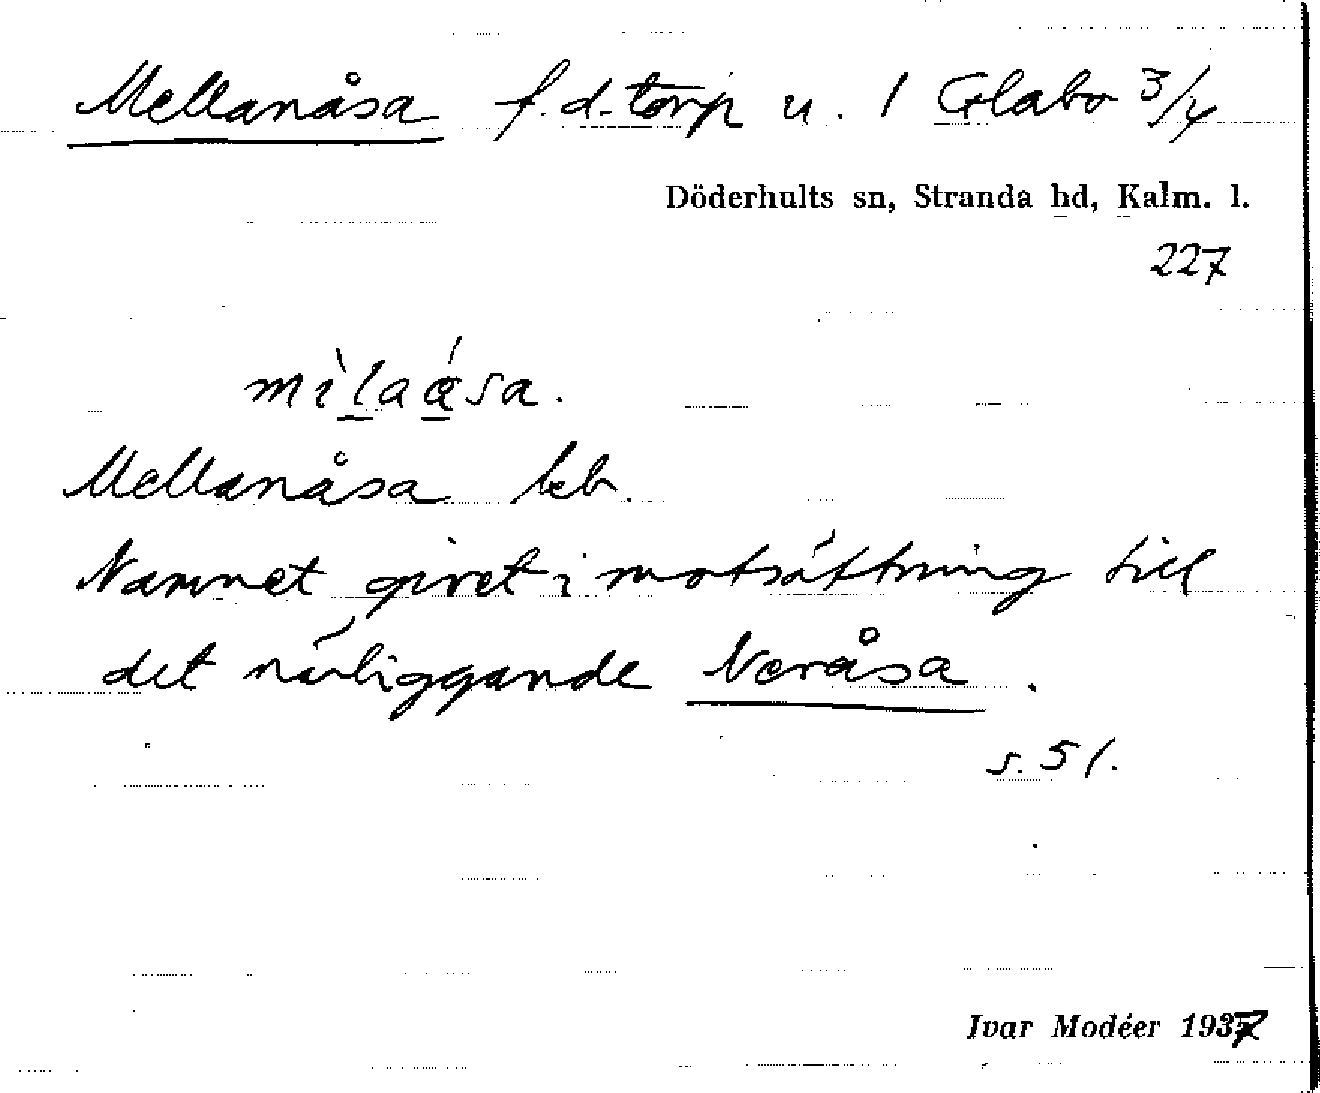 Mellanåsa f.d. torp u. 1 Glabo 3/4
Döderhults sn, Stranda hd, Kalm. l.
227
mìlaása.
Mellanåsa beb.
Namnet givet i motsättning till
det närliggande Neråsa.
s. 51.
Ivar Modéer 1937